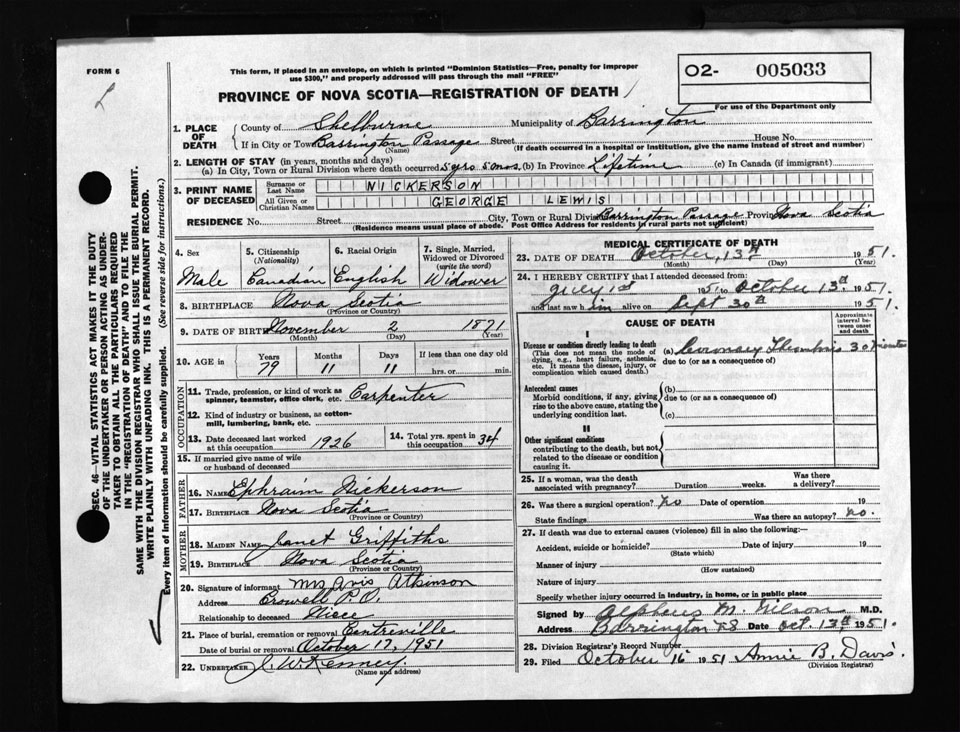 FORM 6
This form, if placed in an envelope, on which is printed "Dominion Statistics—Free, penalty for improper
use $300," and properly addressed will pass through the mail "FREE"
O2- 005033
For use of the Department only
PROVINCE OF NOVA SCOTIA—REGISTRATION OF DEATH
1. PLACE OF DEATH
County of Shelburne Municipality of Barrington
If in City or Town Barrington Passage Street House No.
(Name) (If death occurred in a hospital or institution, give the name instead of street and number)
2. LENGTH OF STAY (in years, months and days)
(a) In City, Town or Rural Division where death occurred 5 yrs 5 mos. (b) In Province Lifetime (c) In Canada (if immigrant)
3. PRINT NAME OF DECEASED
Surname or Last Name NICKERSON
All Given or Christian Names GEORGE LEWIS
RESIDENCE No. Street City, Town or Rural Division Barrington Passage Province Nova Scotia
(Residence means usual place of abode. Post Office Address for residents in rural parts not sufficient)
4. Sex
Male
5. Citizenship (Nationality)
Canadian
6. Racial Origin
English
7. Single, Married, Widowed or Divorced (write the word)
Widower
8. BIRTHPLACE Nova Scotia
(Province or Country)
9. DATE OF BIRTH November 2 1871
(Month) (Day) (Year)
10. AGE in Years Months Days If less than one day old
79 11 11 hrs. or min.
OCCUPATION
11. Trade, profession, or kind of work as
spinner, teamster, office clerk, etc. Carpenter
12. Kind of industry or business, as cotton-
mill, lumbering, bank, etc.
13. Date deceased last worked
at this occupation 1926
14. Total yrs. spent in
this occupation 34
15. If married give name of wife
or husband of deceased
FATHER
16. NAME Ephraim Nickerson
17. BIRTHPLACE Nova Scotia
(Province or Country)
MOTHER
18. MAIDEN NAME Janet Griffiths
19. BIRTHPLACE Nova Scotia
(Province or Country)
20. Signature of informant Mrs Avis Atkinson
Address Crowell P.O.
Relationship to deceased Niece
21. Place of burial, cremation or removal Centreville
Date of burial or removal October 17, 1951
22. UNDERTAKER J. W. Kenney.
(Name and address)
MEDICAL CERTIFICATE OF DEATH
23. DATE OF DEATH October, 13th 1951
(Month) (Day) (Year)
24. I HEREBY CERTIFY that I attended deceased from:
July 1st 1951 to October 13th. 1951.
and last saw him alive on Sept 30th 1951.
CAUSE OF DEATH
Approximate interval between onset and death
I
Disease or condition directly leading to death
(This does not mean the mode of
dying, e.g., heart failure, asthenia,
etc. It means the disease, injury, or
complication which caused death.)
(a) Coronary Thombosis 30 minutes
due to (or as a consequence of)
Antecedent causes
Morbid conditions, if any, giving
rise to the above cause, stating the
underlying condition last.
(b)
due to (or as a consequence of)
(c)
II
Other significant conditions
contributing to the death, but not
related to the disease or condition
causing it.
25. If a woman, was the death
associated with pregnancy? Duration weeks. Was there a delivery?
26. Was there surgical operation? No Date of operation 19
State findings Was there an autopsy? No.
27. If death was due to external causes (violence) fill in also the following:—
Accident, suicide or homicide? Date of injury 19
(State which)
Manner of injury
(How sustained)
Nature of injury
Specify whether injury occurred in industry, in home, or in public place
Signed by Alpheus M. Wilson M.D.
Address Barrington NS Date Oct. 13th, 1951.
28. Division Registrar's Record Number
29. Filed October 16 1951 Annie B. Davis.
(Division Registrar)
SEC. 46—VITAL STATISTICS ACT MAKES IT THE DUTY
OF THE UNDERTAKER OR PERSON ACTING AS UNDER-
TAKER TO OBTAIN ALL THE PARTICULARS REQUIRED
IN THE "REGISTRATION OF DEATH" AND TO FILE THE
SAME WITH THE DIVISION REGISTRAR WHO SHALL ISSUE THE BURIAL PERMIT.
WRITE PLAINLY WITH UNFADING INK. THIS IS A PERMANENT RECORD.
Every item of information should be carefully supplied. (See reverse side for instructions.)